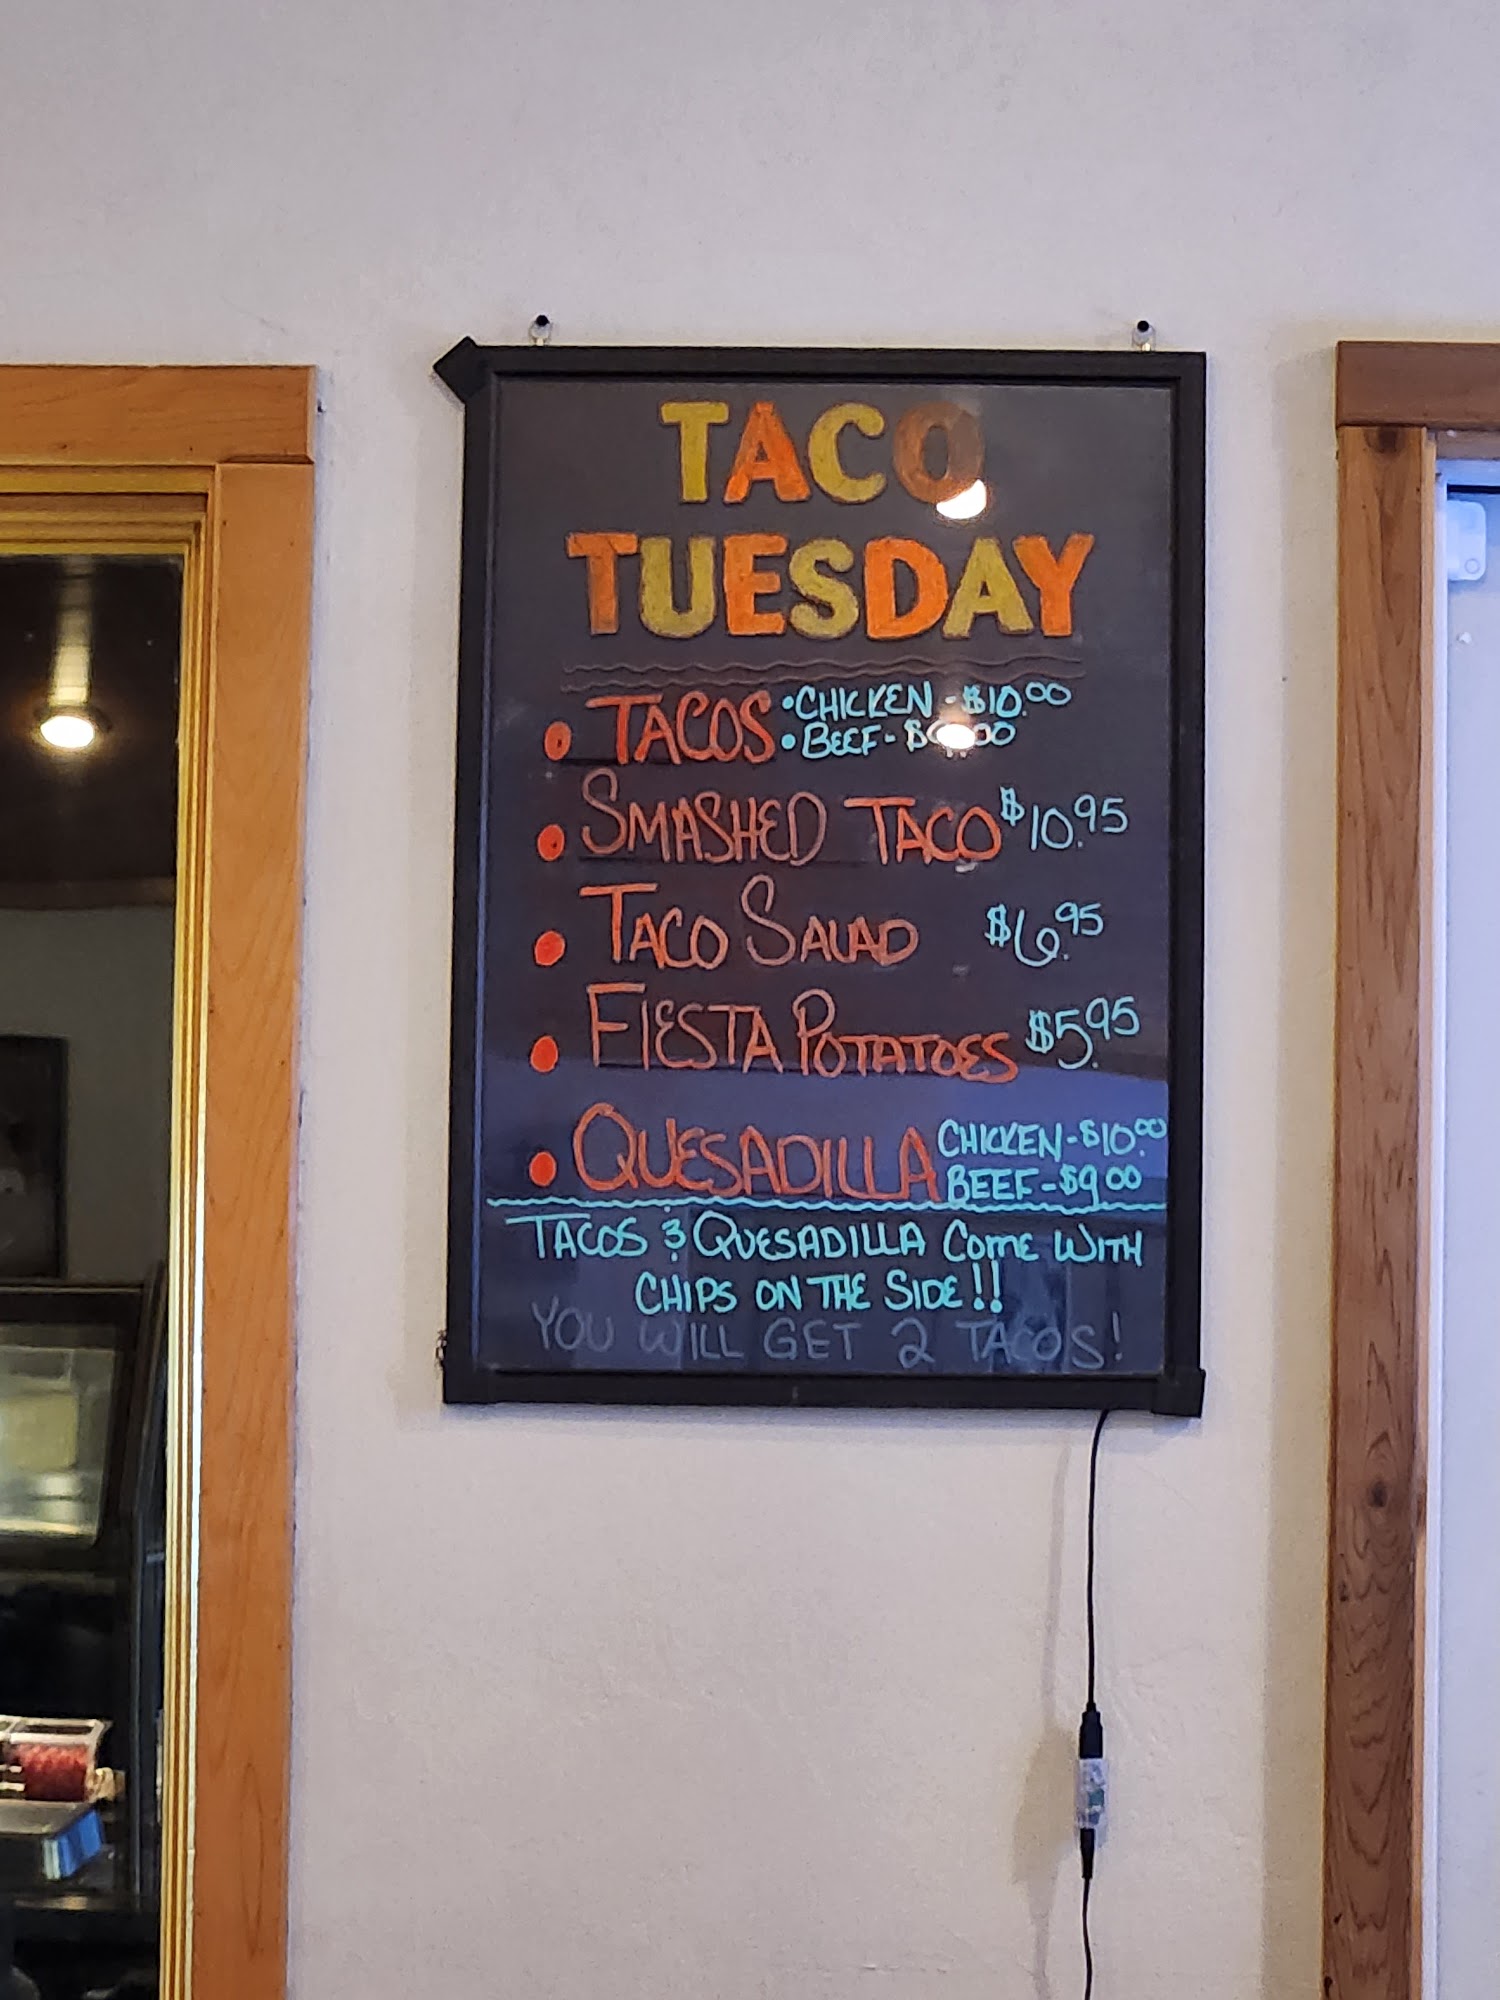 TACO
TUESDAY
• TACOS • CHICKEN - $10.00
• BEEF -
• SMASHED TACO $10.95
• TACO SALAD $6.95
• FIESTA POTATOES $5.95
• QUESADILLA CHICKEN - $10.00
BEEF - $9.00
TACOS & QUESADILLA COME WITH
CHIPS ON THE SIDE!!
YOU WILL GET 2 TACOS!